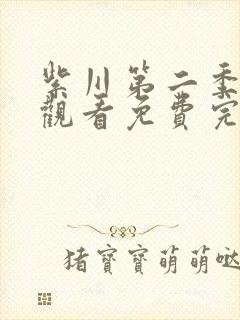 紫川第二季
觀看免費完
猪寶寶萌萌噠